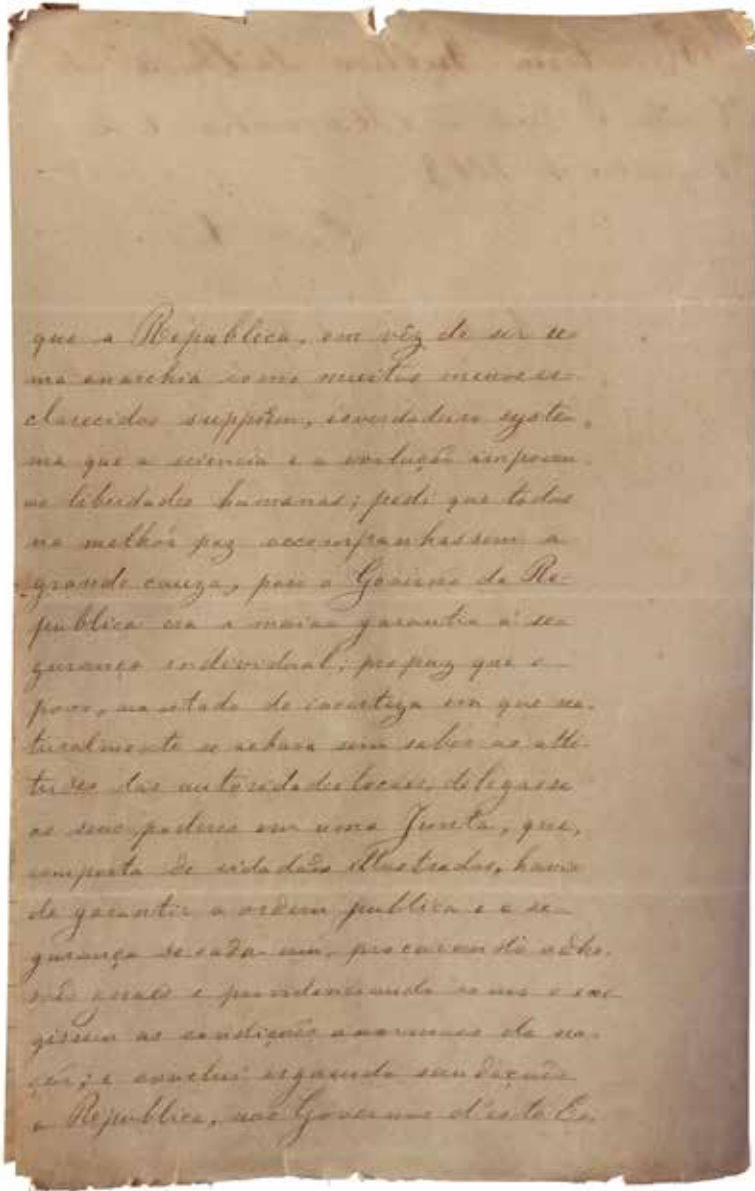 que a Republica, em vêz de ser u-
ma anarchia como muitos menos es-
clarecidos suppõem, é o verdadeiro syste-
ma que a sciencia e a evolução impoem
as liberdades humanas; pedi que todos
na melhór paz accompanhassem a
grande cauza, pois o Governo da Re-
publica era a maior garantia á se-
gurança individual; propuz que o
povo, no estado de incerteza em que na-
turalmente se achava sem saber as atti-
tudes das autoridades locaes, delegasse
os seus poderes em uma Junta, que,
composta de cidadãos illustrados, havia
de garantir a ordem publica e a se-
gurança de cada um, procurando adhe-
sões geraes e providenciando como o exi-
gissem as condições anormaes da na-
ção; e conclui erguendo saudações
a Republica, aos Governos d'este Es-